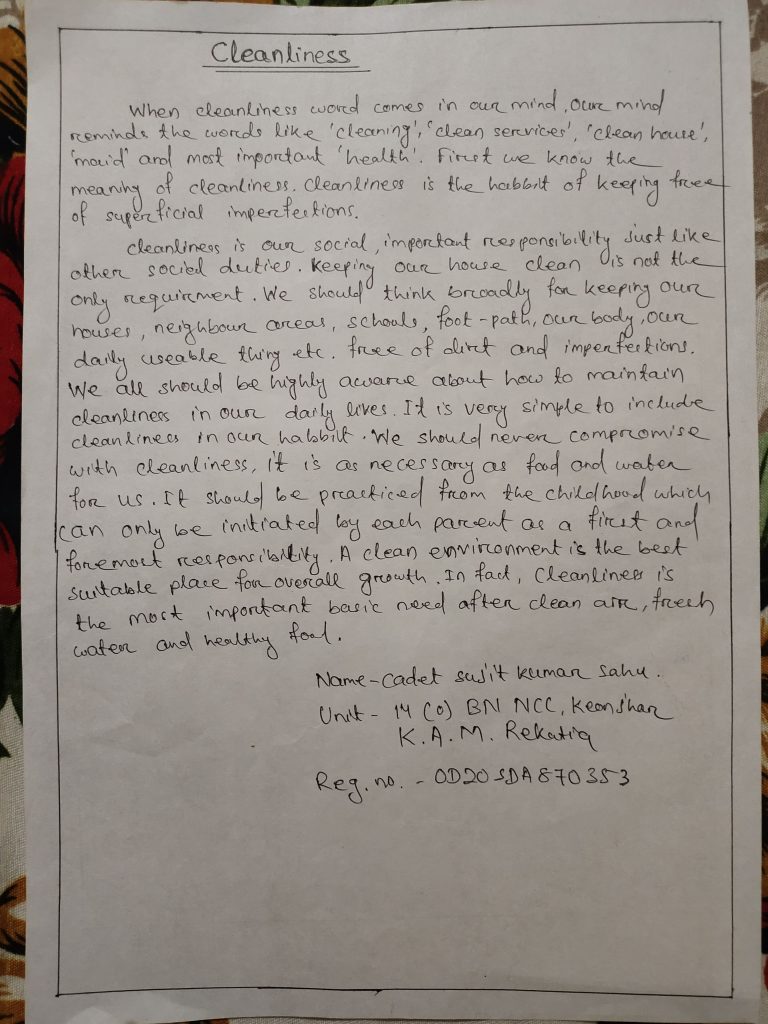 Cleanliness
When cleanliness word comes in our mind, our mind
reminds the words like 'cleaning', 'clean services', 'clean house',
'maid' and most important 'health'. First we know the
meaning of cleanliness. Cleanliness is the habbit of keeping free
of superficial imperfections.
cleanliness is our social, important responsibility just like
other social duties. Keeping our house clean is not the
only requirment. We should think broadly for keeping our
houses, neighbour areas, schools, foot-path, our body, our
daily useable thing etc. free of dirt and imperfections.
We all should be highly aware about how to maintain
cleanliness in our daily lives. It is very simple to include
cleanliness in our habbit. We should never compromise
with cleanliness, it is as necessary as food and water
for us. It should be practiced from the childhood which
can only be initiated by each parent as a first and
foremost responsibility. A clean environment is the best
suitable place for overall growth. In fact, Cleanliness is
the most important basic need after clean air, fresh
water and healthy food.
Name-Cadet Sujit kumar Sahu.
Unit - 14 (O) BN NCC, Keonjhar
K.A.M. Rekutia
Reg. no. - OD20SDA870353